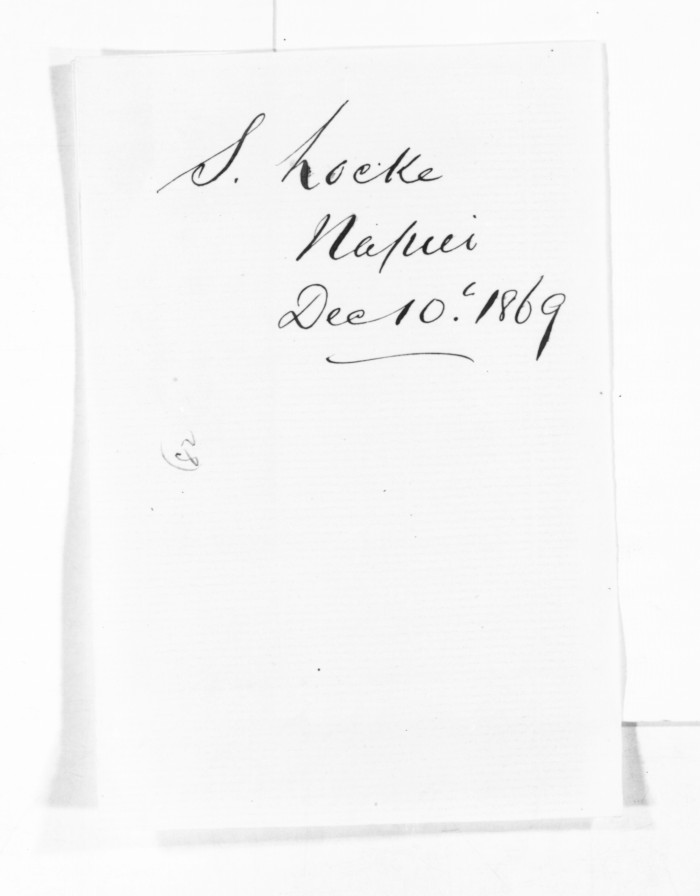 S. Locke
Napier
Dec 10. 1869
(82